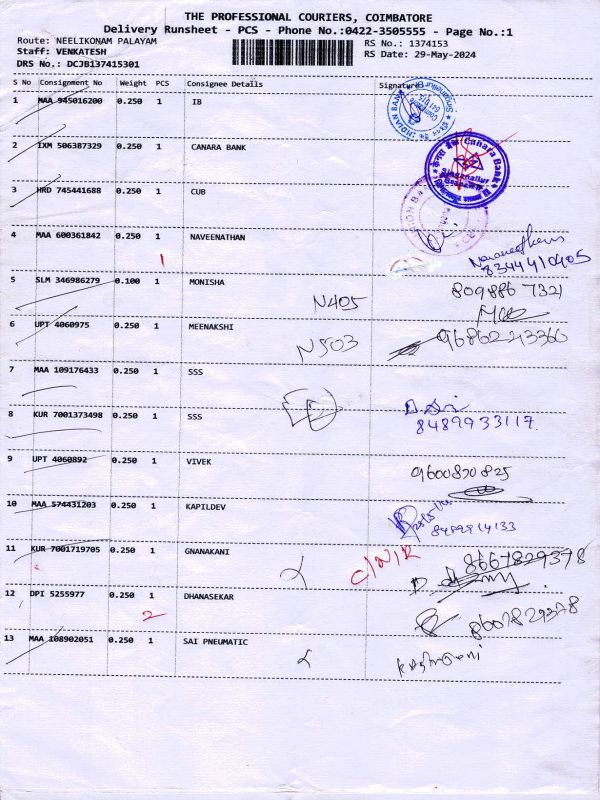 THE PROFESSIONAL COURIERS, COIMBATORE
Delivery Runsheet - PCS - Phone No.:0422-3505555 - Page No.:1
Route: NEELIKONAM PALAYAM
RS No.: 1374153
Staff: VENKATESH
RS Date: 29-May-2024
DRS No.: DCJB137415301
S No Consignment No Weight PCS Consignee Details Signature
1 MAA 945016200 0.250 1 IB
INDIAN BANK
2 IXM 506387329 0.250 1 CANARA BANK
Canara Bank
3 HRD 745441688 0.250 1 CUB
4 MAA 600361842 0.250 1 NAVEENATHAN
8344410405
1
5 SLM 346986279 0.100 1 MONISHA N405 809886 7321
6 UPT 4060975 0.250 1 MEENAKSHI N503
7 MAA 109176433 0.250 1 SSS
8 KUR 7001373498 0.250 1 SSS 8489933117.
9 UPT 4060892 0.250 1 VIVEK 9600870825
10 MAA 574431203 0.250 1 KAPILDEV
11 KUR 7001719705 0.250 1 GNANAKANI C/N/R 8667829378
12 DPI 5255977 0.250 1 DHANASEKAR 8667829378
2
13 MAA 108902051 0.250 1 SAI PNEUMATIC